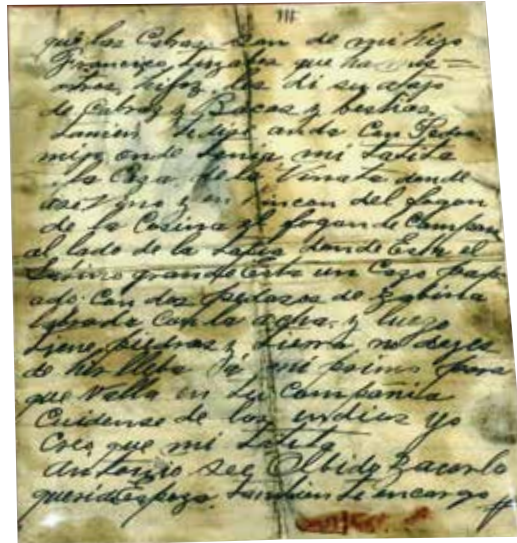 III
que las Cabras son de mi hijo
Francisco Luzales que ha
otros hijos les di su atajo
de Cabras y Bacas y bestias,
tamien le dije anda Con Pedro
mijo, onde tenia mi tatita
la Casa de la Vinata donde
asei Vino y en Rincon del fogon
de la Cosina el fogon de Campana
al lado de la donde Esta el
grande Esta un Cozo
ado: Con dos pedasos de zabina
labrada Con la acha, y luego
tiene piedras y tierra no dejes
de hir lleba Já mi primo para
que Valla en tu Compañila
Cuidense de los yndios yo
Creo que mi tatita
Antonio see Olbido Zacarlo
querida Espoza. tambien te encargo